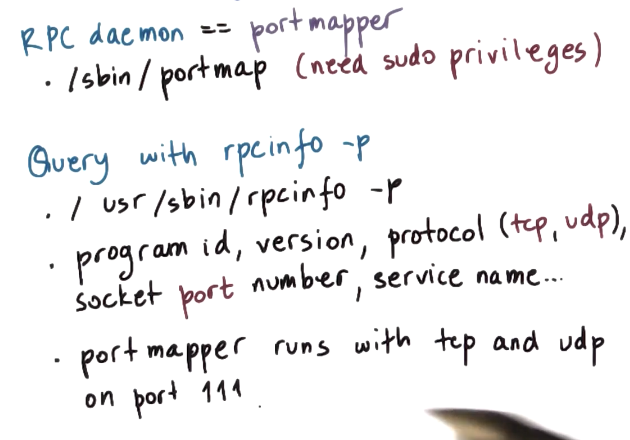 RPC daemon == portmapper
. /sbin/portmap (need sudo privileges)
Query with rpcinfo -p
. / usr/sbin/rpcinfo -p
. program id, version, protocol (tcp, udp),
socket port number, service name...
. portmapper runs with tcp and udp
on port 111